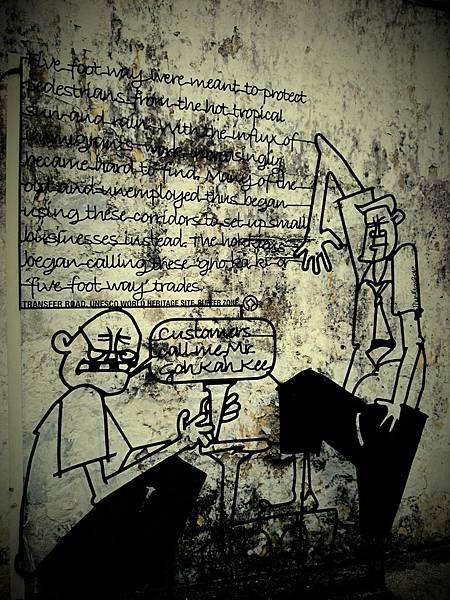 Five-foot way were meant to protect
pedestrians from the hot tropical
sun and rain. With the influx of
immigrants work increasingly
became hard to find. Many of the
old and unemployed thus began
using these corridors to set up small
businesses instead. The hokkiens
began calling these "gho ka ki" or
five foot way trades.
TRANSFER ROAD, UNESCO WORLD HERITAGE SITE, BUFFER ZONE
Customers
call me Mr.
Goh Kah Kee